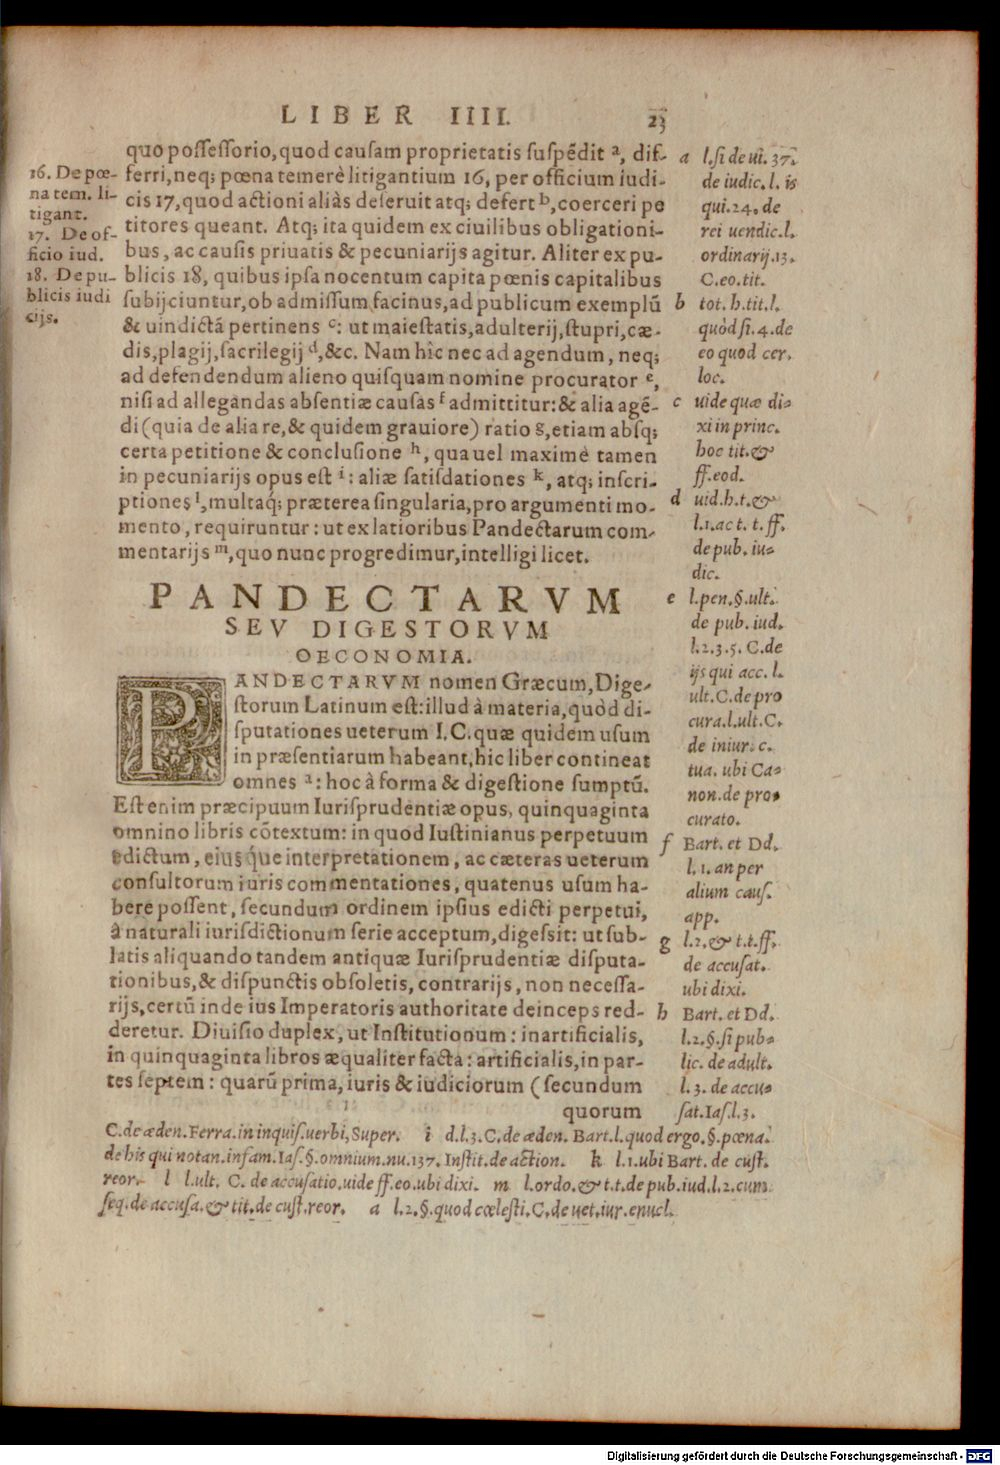 LIBER IIII. 23
quo possessorio, quod causam proprietatis suspēdit ᵃ, dif-
ferri, neq; pœna temerè litigantium 16, per officium iudi-
cis 17, quod actioni aliàs deseruit atq; defert ᵇ, coerceri pe
titores queant. Atq; ita quidem ex ciuilibus obligationi-
bus, ac causis priuatis & pecuniarijs agitur. Aliter ex pu-
blicis 18, quibus ipsa nocentum capita pœnis capitalibus
subijciuntur, ob admissum facinus, ad publicum exemplū
& uindictā pertinens ᶜ: ut maiestatis, adulterij, stupri, cæ-
dis, plagij, sacrilegij ᵈ, &c. Nam hîc nec ad agendum, neq;
ad defendendum alieno quisquam nomine procurator ᵉ,
nisi ad allegandas absentiæ causas ᶠ admittitur: & alia agē-
di (quia de alia re, & quidem grauiore) ratio ᵍ, etiam absq;
certa petitione & conclusione ʰ, qua uel maximè tamen
in pecuniarijs opus est ⁱ: aliæ satisdationes ᵏ, atq; inscri-
ptiones ˡ, multaq́; præterea singularia, pro argumenti mo-
mento, requiruntur: ut ex latioribus Pandectarum com-
mentarijs ᵐ, quo nunc progredimur, intelligi licet.
16. De pœ-
na tem. li-
tigant.
17. De of-
ficio iud.
18. De pu-
blicis iudi
cijs.
PANDECTARVM
SEV DIGESTORVM
OECONOMIA.
PANDECTARVM nomen Græcum, Dige-
storum Latinum est: illud à materia, quòd di-
sputationes ueterum I. C. quæ quidem usum
in præsentiarum habeant, hic liber contineat
omnes ᵃ: hoc à forma & digestione sumptū.
Est enim præcipuum Iurisprudentiæ opus, quinquaginta
omnino libris cōtextum: in quod Iustinianus perpetuum
edictum, eiusq́ue interpretationem, ac cæteras ueterum
consultorum iuris commentationes, quatenus usum ha-
bere possent, secundum ordinem ipsius edicti perpetui,
à naturali iurisdictionum serie acceptum, digessit: ut sub-
latis aliquando tandem antiquæ Iurisprudentiæ disputa-
tionibus, & dispunctis obsoletis, contrarijs, non necessa-
rijs, certū inde ius Imperatoris authoritate deinceps red-
deretur. Diuisio duplex, ut Institutionum: inartificialis,
in quinquaginta libros æqualiter facta: artificialis, in par-
tes septem: quarū prima, iuris & iudiciorum (secundum
quorum
a l. si de ui. 37.
de iudic. l. is
qui. 24. de
rei uendic. l.
ordinarij. 13.
C. eo. tit.
b tot. h. tit. l.
quòd si. 4. de
eo quod cer.
loc.
c uide quæ di-
xi in princ.
hoc tit. &
ff. eod.
d uid. h. t. &
l. 1. ac t. t. ff.
de pub. iu-
dic.
e l. pen. §. ult.
de pub. iud.
l. 2. 3. 5. C. de
ijs qui acc. l.
ult. C. de pro
cura. l. ult. C.
de iniur. c.
tua. ubi Ca-
non. de pro-
curato.
f Bart. et Dd.
l. 1. an per
alium caus.
app.
g l. 2. & t. t. ff.
de accusat.
ubi dixi.
h Bart. et Dd.
l. 2. §. si pub-
lic. de adult.
l. 3. de accu-
sat. Ias. l. 3.
C. de æden. Ferra. in inquis. uerbi, Super. i d. l. 3. C. de æden. Bart. l. quod ergo. §. pœna.
de his qui notan. infam. Ias. §. omnium. nu. 137. Instit. de action. k l. 1. ubi Bart. de cust.
reor. l l. ult. C. de accusatio. uide ff. eo. ubi dixi. m l. ordo. & t. t. de pub. iud. l. 2. cum
seq. de accusa. & tit. de cust. reor. a l. 2. §. quod cœlesti. C. de uet. iur. enucl.
Digitalisierung gefördert durch die Deutsche Forschungsgemeinschaft - DFG